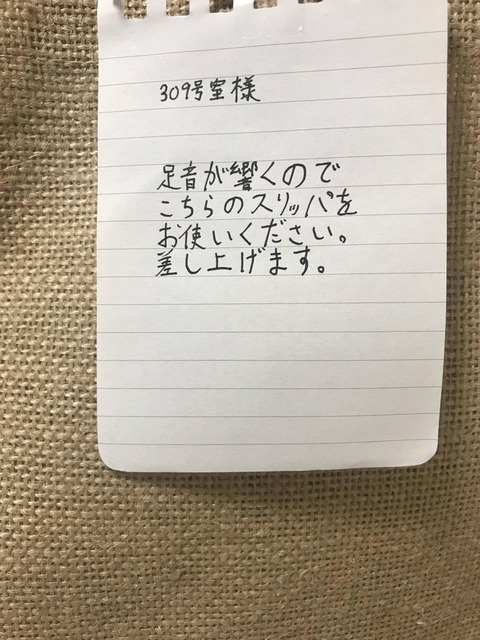 309号室様
足音が響くので
こちらのスリッパを
お使いください。
差し上げます。